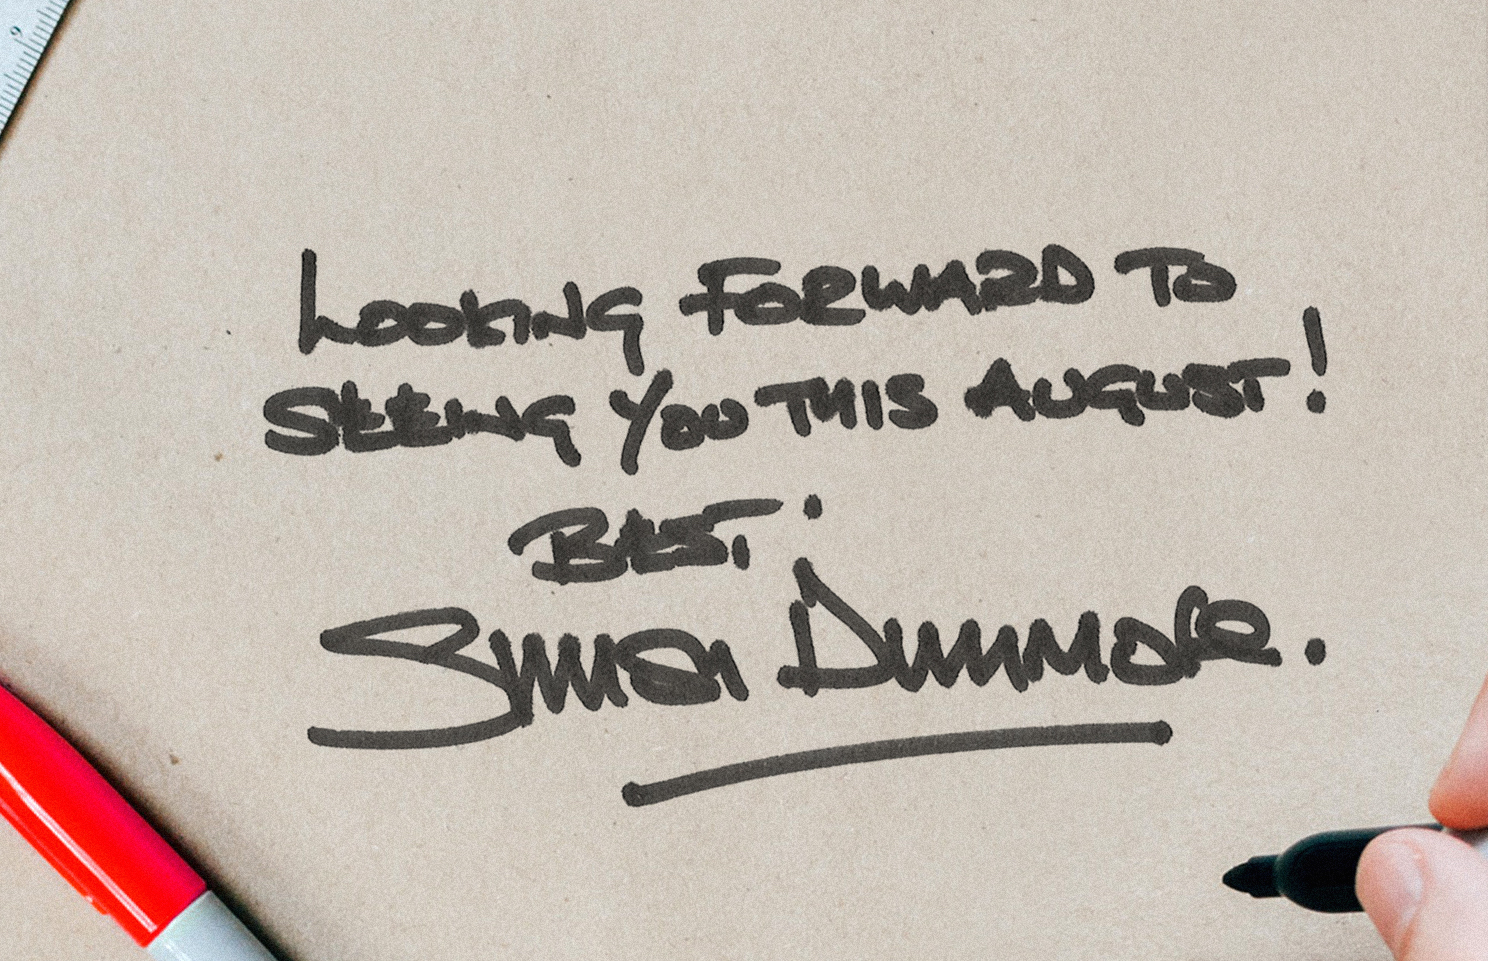 LOOKING FORWARD TO
SEEING YOU THIS AUGUST!
BEST.
Simon Dunmore.
9